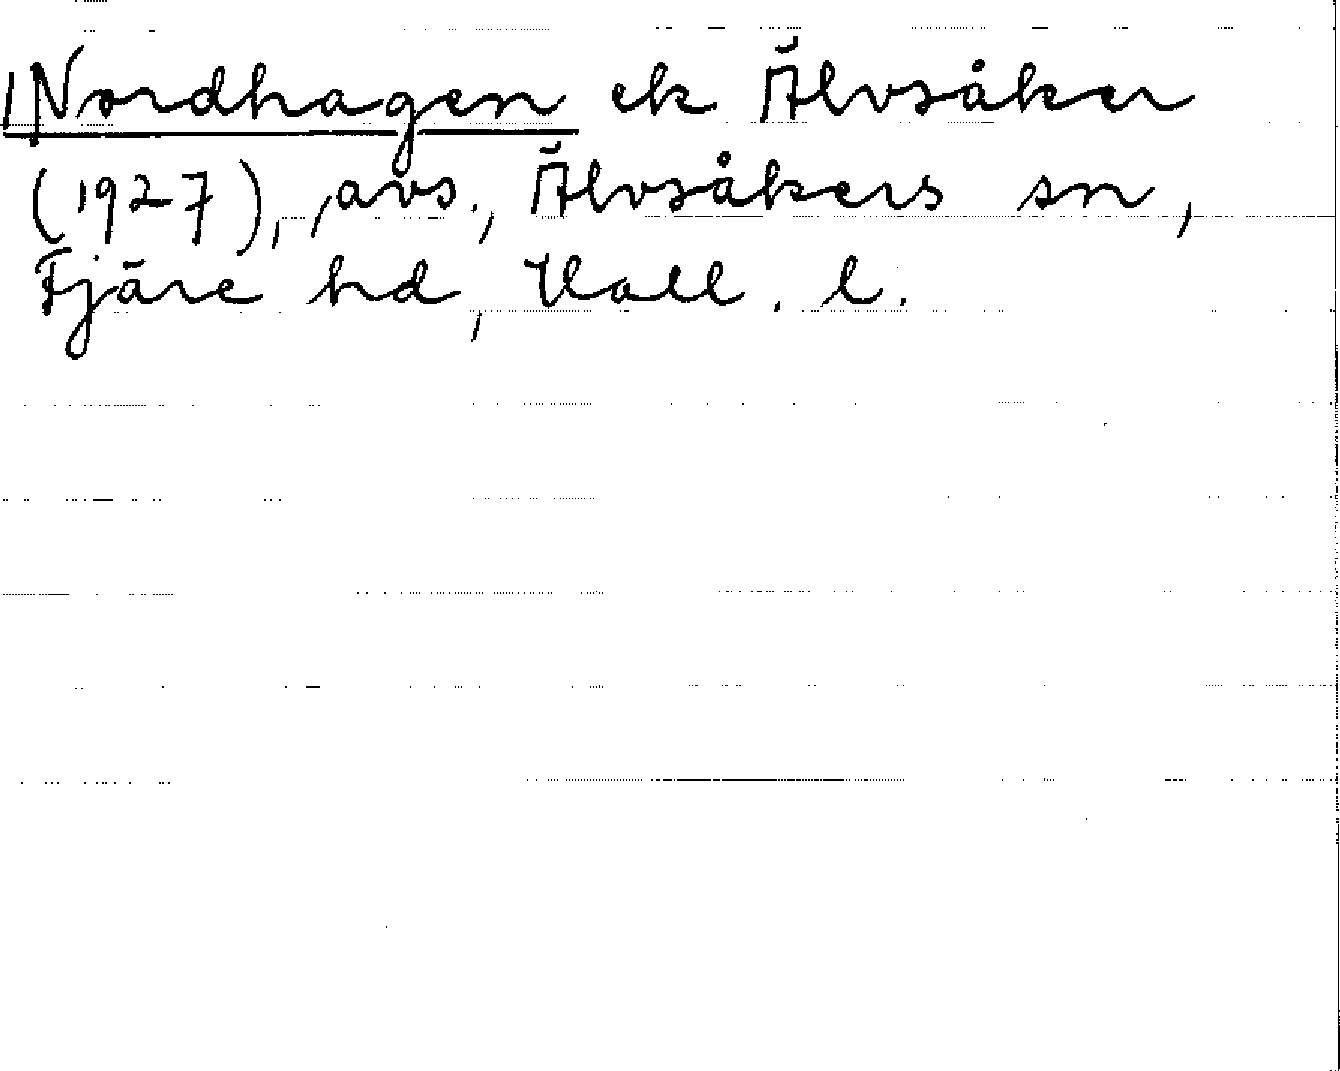 Nordhagen ek Älvsåker
(1927), avs., Älvsåkers sn,
Fjäre hd, Hall. l.